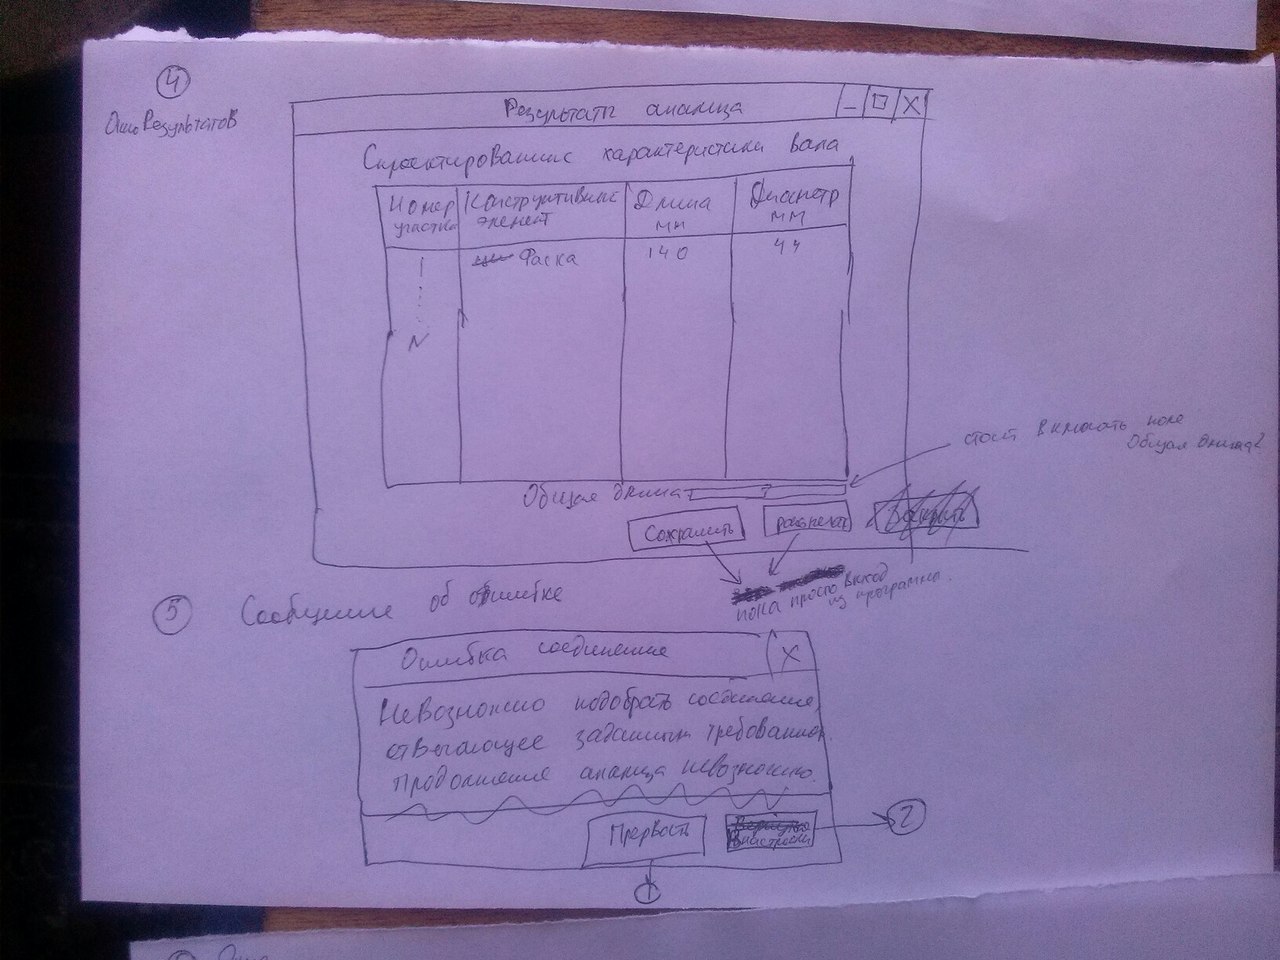 4
Окно Результатов
Результаты анализа
_ □ X
Спроектированные характеристики вала
Номер участка
Конструктивные элемент
Длина мм
Диаметр мм
1
Фаска
140
44
N
Общая длина
стоит включать поле
Общая длина?
Сохранить
распечат
Закрыть
пока просто выход
из программы.
5 Сообщение об ошибке
Ошибка соединения
X
Невозможно подобрать соединение,
отвечающее заданным требованиям.
Продолжение анализа невозможно.
Прервать
в настройки
2
1